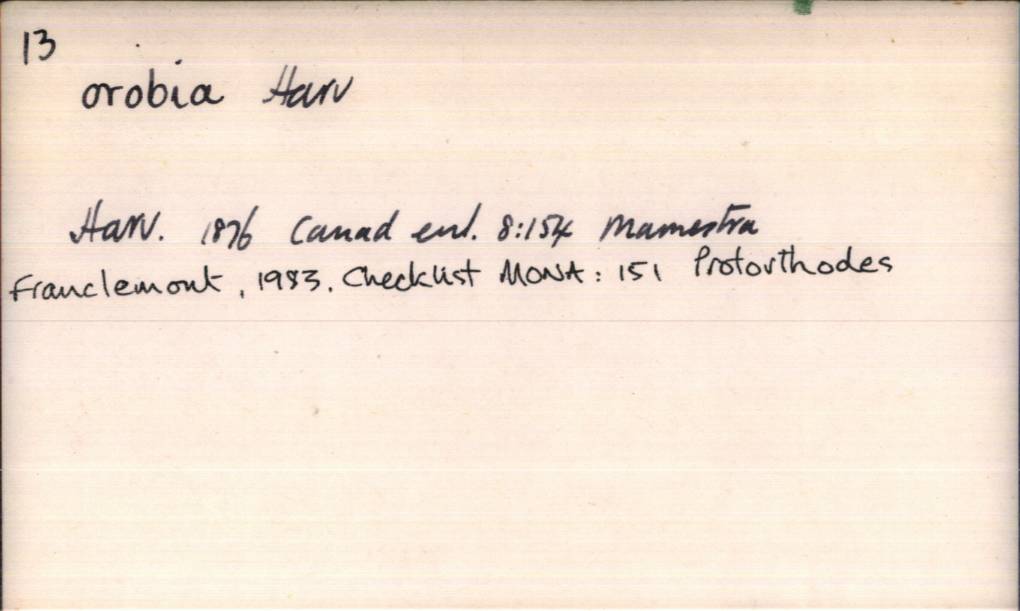 13
orobia Harv
Harv. 1876 Canad ent. 8:154 Mamestra
Franclemont, 1983. Checklist MONA: 151 Protorthodes